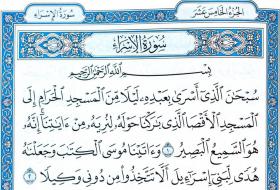 الجزء الخامس عشر
سورة الإسراء
سورة الإسراء
بسم الله الرحمن الرحيم
سبحن الذى أسرى بعبده ليلا من المسجد الحرام إلى
المسجد الأقصا الذى بركنا حوله لنريه من ءايتنا إنه
هو السميع البصير ١ وءاتينا موسى الكتب وجعلنه
هدى لبنى إسرءيل ألا تتخذوا من دونى وكيلا ٢